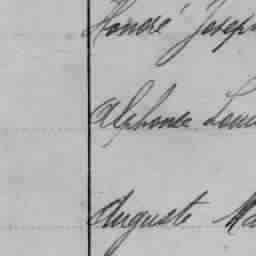 Honoré Joseph
Alphonse Louis
Auguste Ma